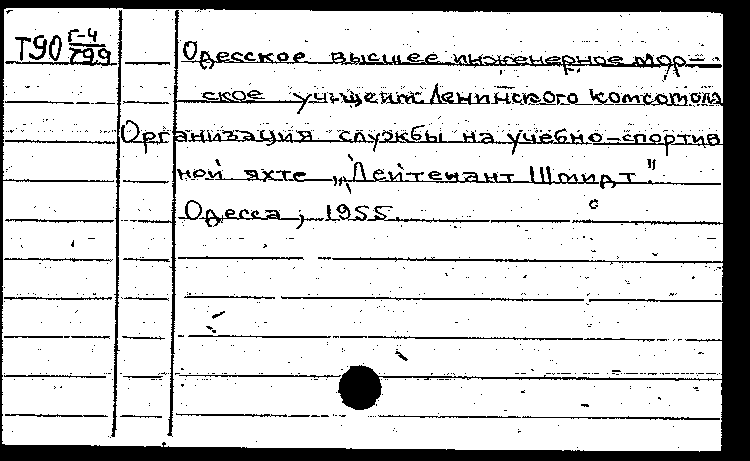 Т90 Г-4/799
Одесское высшее инженерное мор-
ское училище Ленинского комсомола
Организация службы на учебно-спортив
ной яхте „Лейтенант Шмидт"
Одесса, 1955.